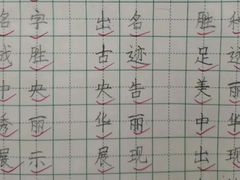 名字 出名 胜利
成胜 古迹 足迹
中央 央告 美丽
秀丽 华丽 中华
展示 展现 出现